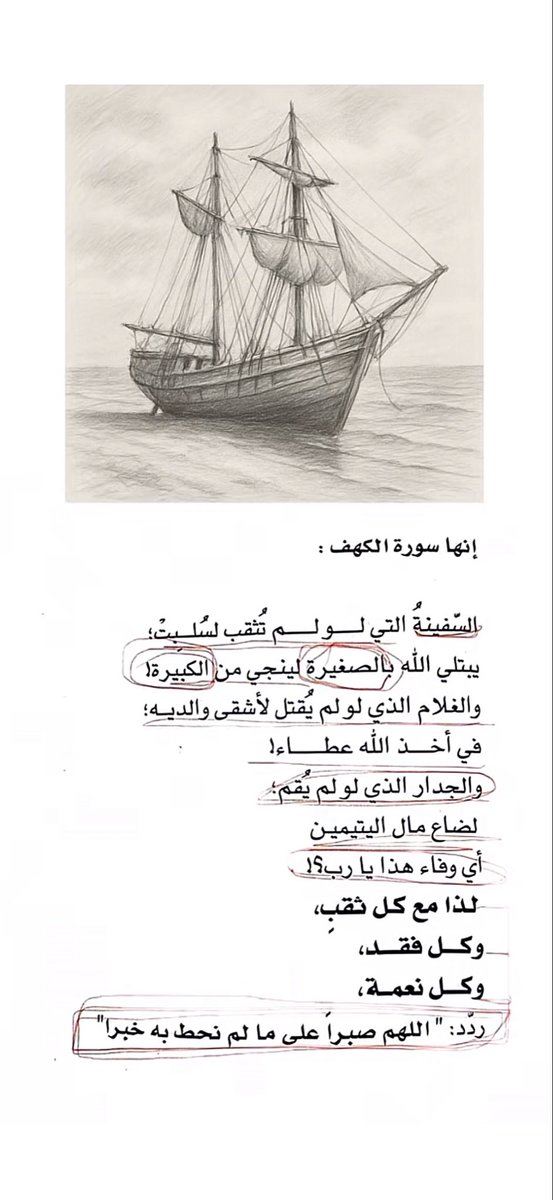 إنها سورة الكهف :
السّفينةُ التي لو لم تُثقب لسُلبتْ؛
يبتلي الله بالصغيرة لينجي من الكبيرة!
والغلام الذي لو لم يُقتل لأشقى والديه؛
في أخذ الله عطاء!
والجدار الذي لو لم يُقم؛
لضاع مال اليتيمين
أي وفاء هذا يا رب؟!
لذا مع كل ثقبٍ،
وكل فقد،
وكل نعمة،
ردّد: "اللهم صبراً على ما لم نحط به خبرا"